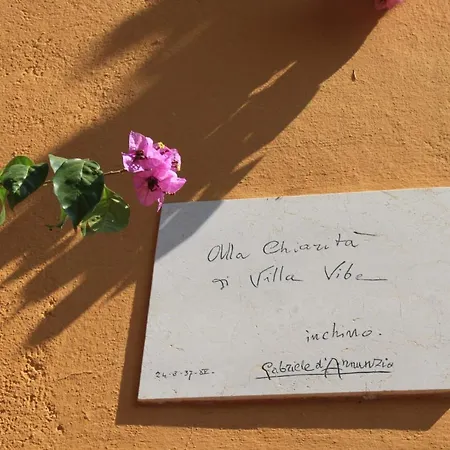 Alla Chiarità
di Villa Vibe
inchino.
24-8-37-XV.
Gabriele d'Annunzio